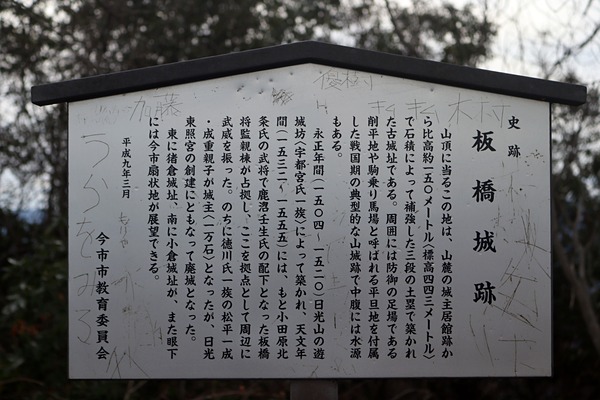 史跡
板橋城跡
山頂に当るこの地は、山麓の城主居館跡か
ら比高約一五〇メートル（標高四四三メートル）
で石積によって補強した三段の土塁で築かれ
た古城址である。周囲には防御の足場である
削平地や駒乗り馬場と呼ばれる平旦地を付属
した戦国期の典型的な山城跡で中腹には水源
もある。
永正年間（一五〇四～一五二〇）日光山の遊
城坊（宇都宮氏一族）によって築かれ、天文年
間（一五三二～一五五五）には、もと小田原北
条氏の武将で鹿沼壬生氏の配下となった板橋
将監親棟が占拠し、ここを拠点として周辺に
武威を振った。のちに徳川氏一族の松平一成
・成重親子が城主（一万石）となったが、日光
東照宮の創建にともなって廃城となった。
東に猪倉城址、南に小倉城址が、また眼下
には今市扇状地が展望できる。
平成九年三月
今市市教育委員会
加藤
木村